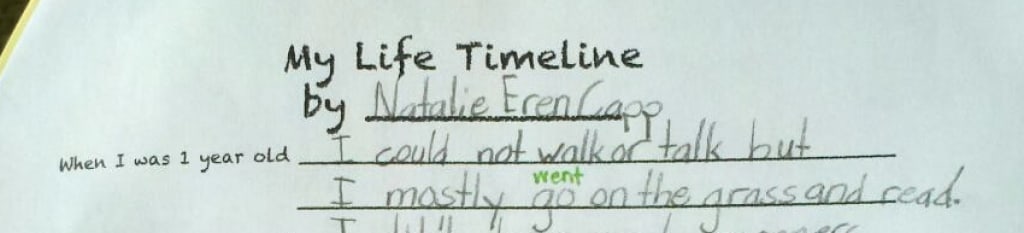 My Life Timeline
by Natalie Eren Capp
When I was 1 year old I could not walk or talk but
went
I mostly go on the grass and read.
I